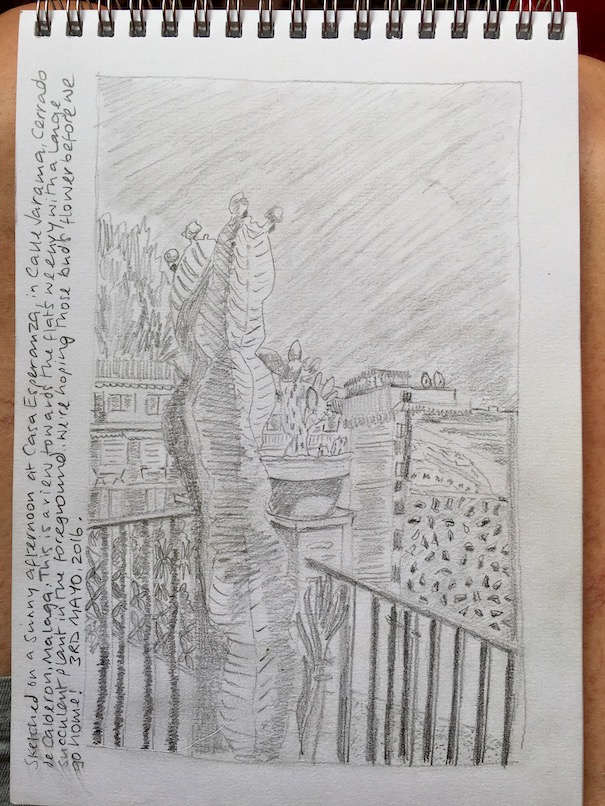 Sketched on a sunny afternoon at Casa Esperanza, in Calle Jarama, Cerrado
de Calderon, Malaga. This is a view towards the flats we envy with a large
succulent plant in the foreground. We're hoping those buds flower before we
go home! 3RD MAYO. 2016.